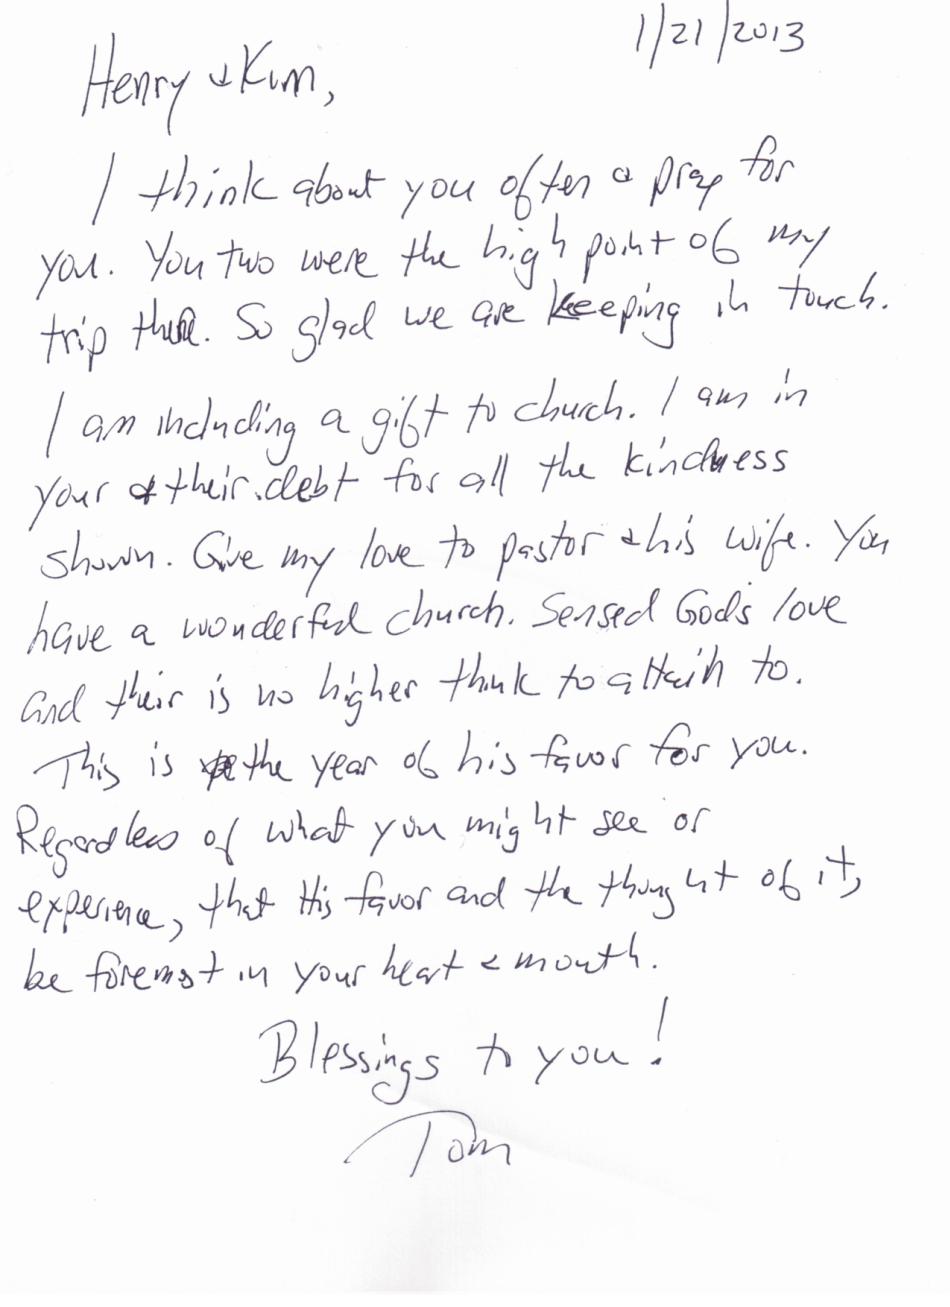 1/21/2013
Henry & Kim,
I think about you often & pray for
you. You two were the high point of my
trip there. So glad we are keeping in touch.
I am including a gift to church. I am in
your & their debt for all the kindness
shown. Give my love to pastor & his wife. You
have a wonderful church. Sensed God's love
and their is no higher think to attain to.
This is the year of his favor for you.
Regardless of what you might see or
experience, that His favor and the thought of it,
be foremost in your heart & mouth.
Blessings to you!
Tom